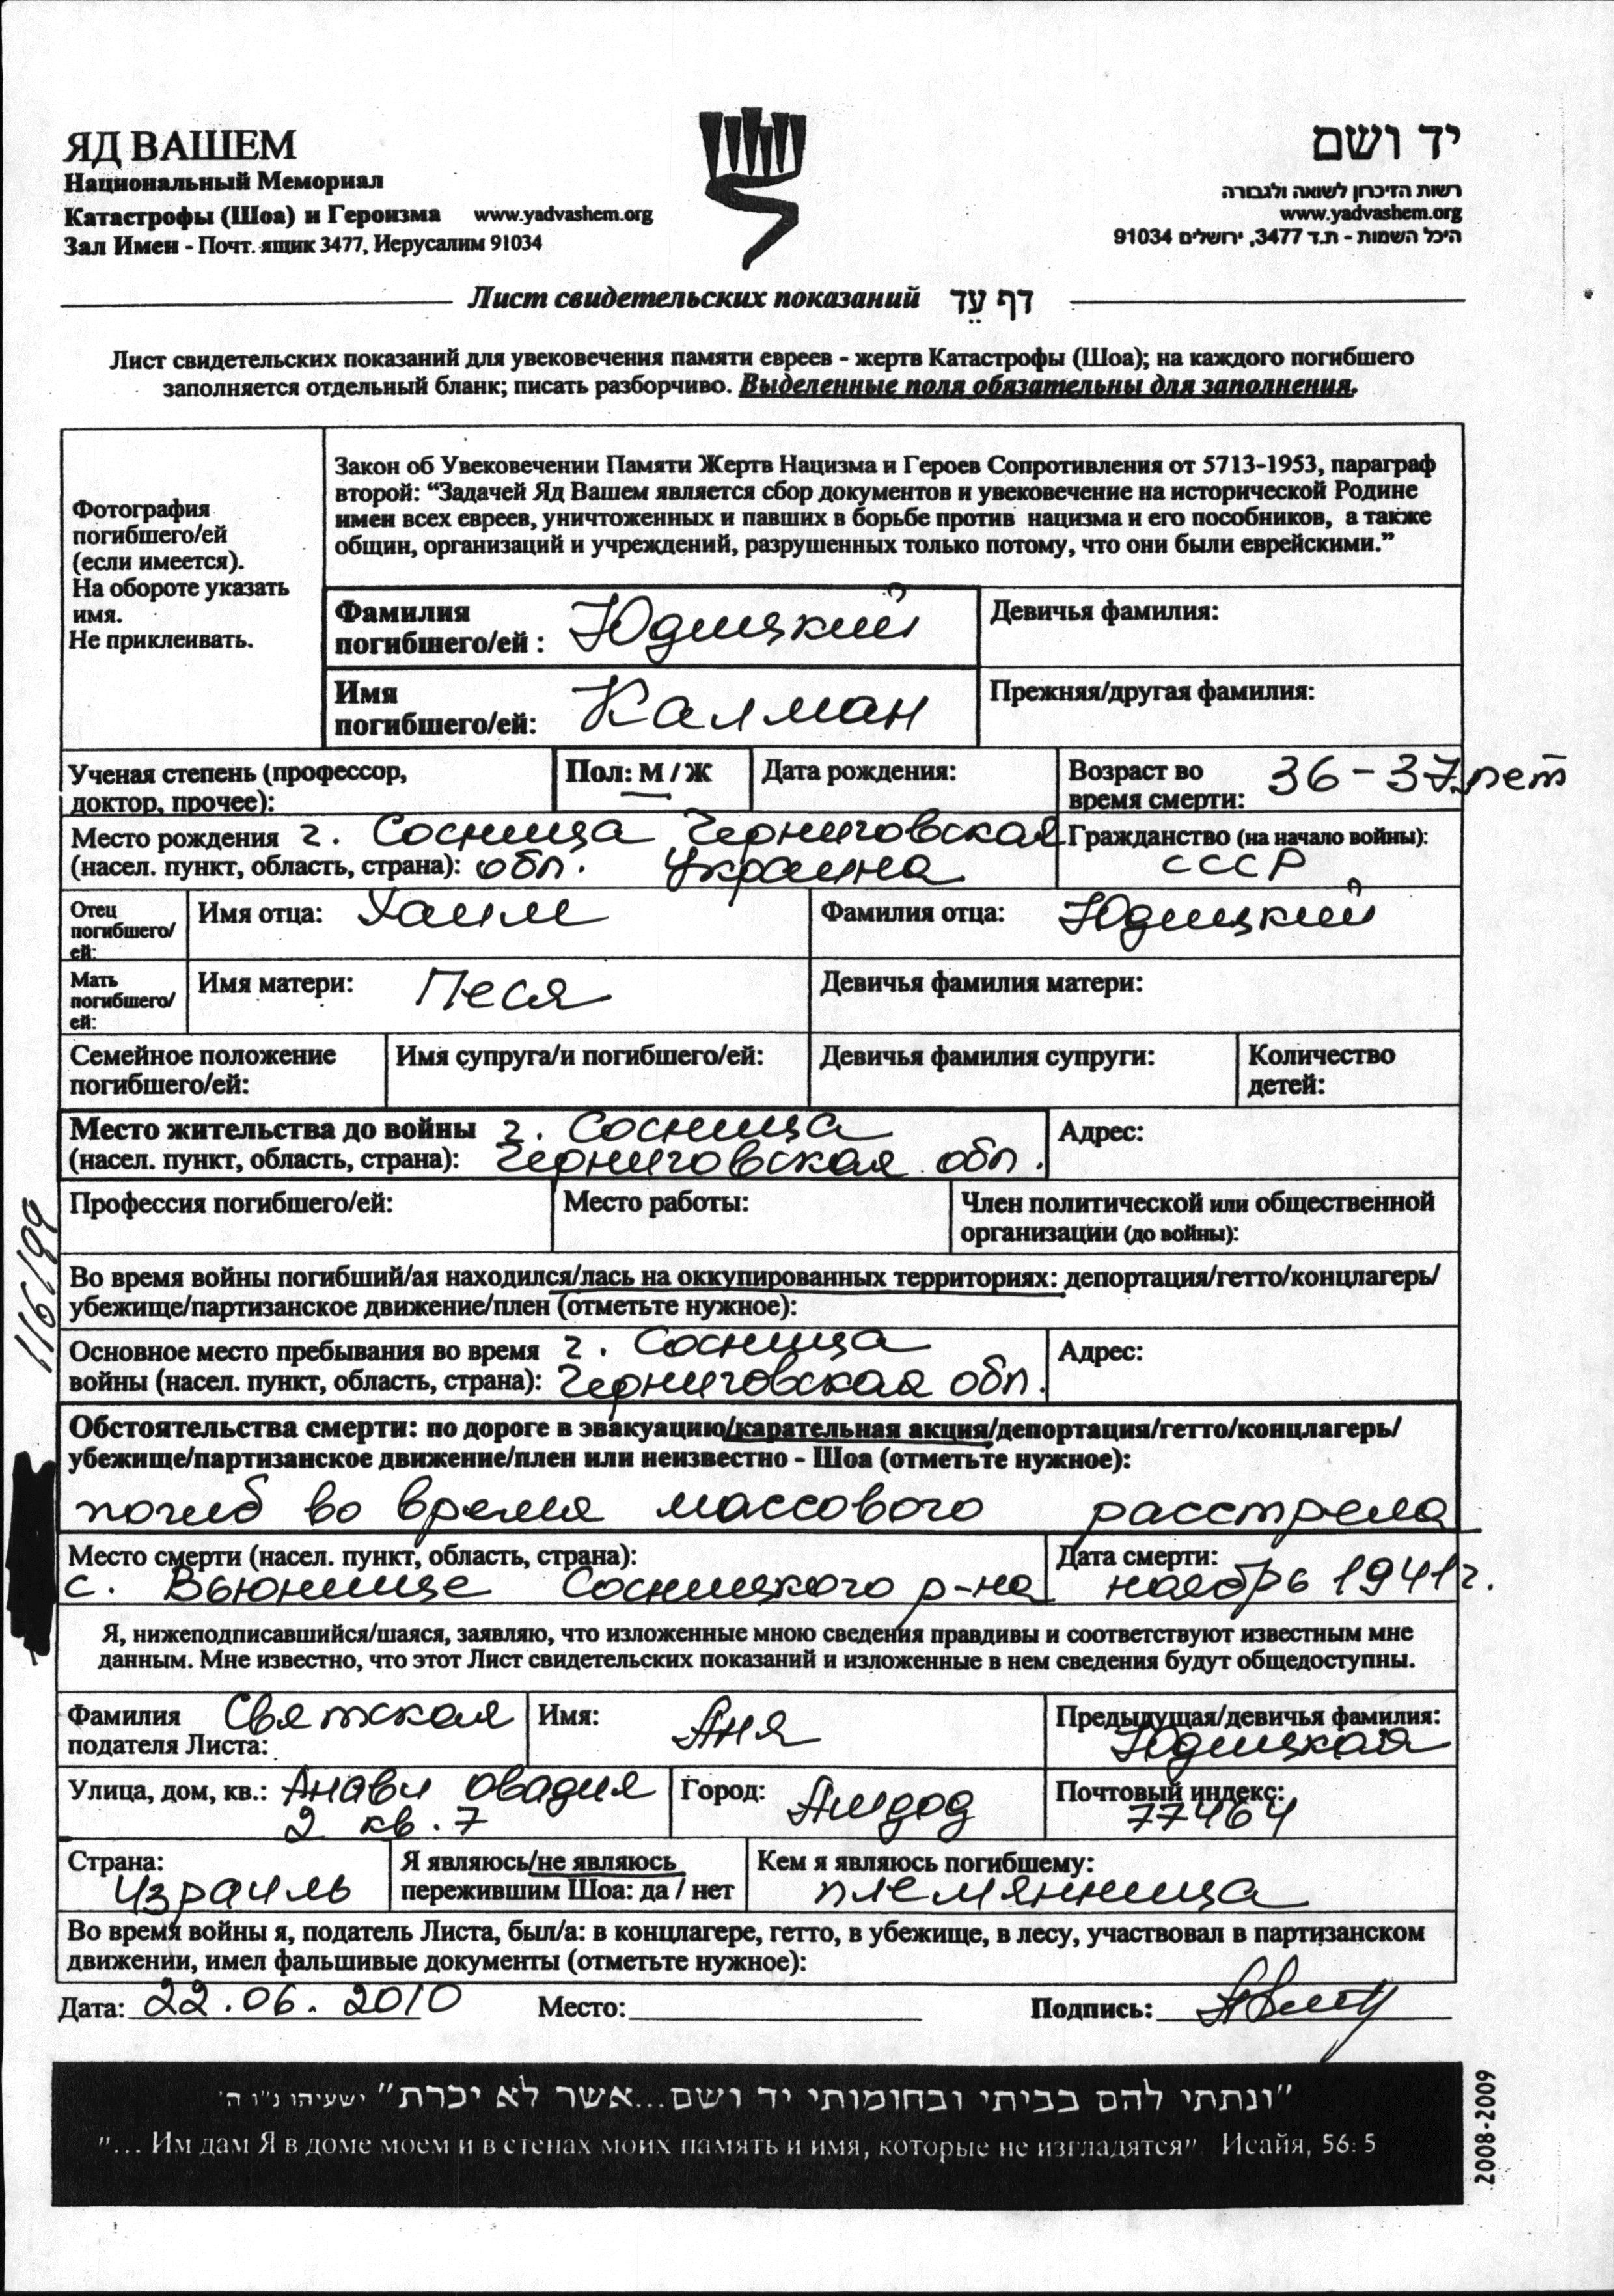 ЯД ВАШЕМ
Национальный Мемориал
Катастрофы (Шоа) и Героизма www.yadvashem.org
Зал Имен - Почт. ящик 3477, Иерусалим 91034
יד ושם
רשות הזיכרון לשואה ולגבורה
www.yadvashem.org
היכל השמות - ת.ד 3477, ירושלים 91034
Лист свидетельских показаний דף עֵד
Лист свидетельских показаний для увековечения памяти евреев - жертв Катастрофы (Шоа); на каждого погибшего
заполняется отдельный бланк; писать разборчиво. Выделенные поля обязательны для заполнения.
Фотография
погибшего/ей
(если имеется).
На обороте указать
имя.
Не приклеивать.
Закон об Увековечении Памяти Жертв Нацизма и Героев Сопротивления от 5713-1953, параграф
второй: “Задачей Яд Вашем является сбор документов и увековечение на исторической Родине
имен всех евреев, уничтоженных и павших в борьбе против нацизма и его пособников, а также
общин, организаций и учреждений, разрушенных только потому, что они были еврейскими.”
Фамилия
погибшего/ей : Юдицкий
Девичья фамилия:
Имя
погибшего/ей: Калман
Прежняя/другая фамилия:
Ученая степень (профессор,
доктор, прочее):
Пол: М / Ж
Дата рождения:
Возраст во
время смерти: 36-37 лет
Место рождения г. Сосница Черниговская
(насел. пункт, область, страна): обл. Украина
Гражданство (на начало войны):
СССР
Отец
погибшего/
ей:
Имя отца: Хаим
Фамилия отца: Юдицкий
Мать
погибшего/
ей:
Имя матери: Песя
Девичья фамилия матери:
Семейное положение
погибшего/ей:
Имя супруга/и погибшего/ей:
Девичья фамилия супруги:
Количество
детей:
Место жительства до войны г. Сосница
(насел. пункт, область, страна): Черниговская обл.
Адрес:
Профессия погибшего/ей:
Место работы:
Член политической или общественной
организации (до войны):
116/99
Во время войны погибший/ая находился/лась на оккупированных территориях: депортация/гетто/концлагерь/
убежище/партизанское движение/плен (отметьте нужное):
Основное место пребывания во время г. Сосница
войны (насел. пункт, область, страна): Черниговская обл.
Адрес:
Обстоятельства смерти: по дороге в эвакуацию/карательная акция/депортация/гетто/концлагерь/
убежище/партизанское движение/плен или неизвестно - Шоа (отметьте нужное):
погиб во время массового расстрела
Место смерти (насел. пункт, область, страна):
с. Вьюнище Сосницкого р-на
Дата смерти:
ноябрь 1941г.
Я, нижеподписавшийся/шаяся, заявляю, что изложенные мною сведения правдивы и соответствуют известным мне
данным. Мне известно, что этот Лист свидетельских показаний и изложенные в нем сведения будут общедоступны.
Фамилия Святская
подателя Листа:
Имя: Аня
Предыдущая/девичья фамилия:
Юдицкая
Улица, дом, кв.: Анави овадия
2 кв. 7
Город: Ашдод
Почтовый индекс:
77464
Страна:
Израиль
Я являюсь/не являюсь
пережившим Шоа: да / нет
Кем я являюсь погибшему:
племянница
Во время войны я, податель Листа, был/а: в концлагере, гетто, в убежище, в лесу, участвовал в партизанском
движении, имел фальшивые документы (отметьте нужное):
Дата: 22.06.2010 Место: Подпись:
"ונתתי להם בביתי ובחומותי יד ושם...אשר לא יכרת" ישעיהו נ"ו ה'
"... Им дам Я в доме моем и в стенах моих память и имя, которые не изгладятся" Исайя, 56: 5
2008-2009